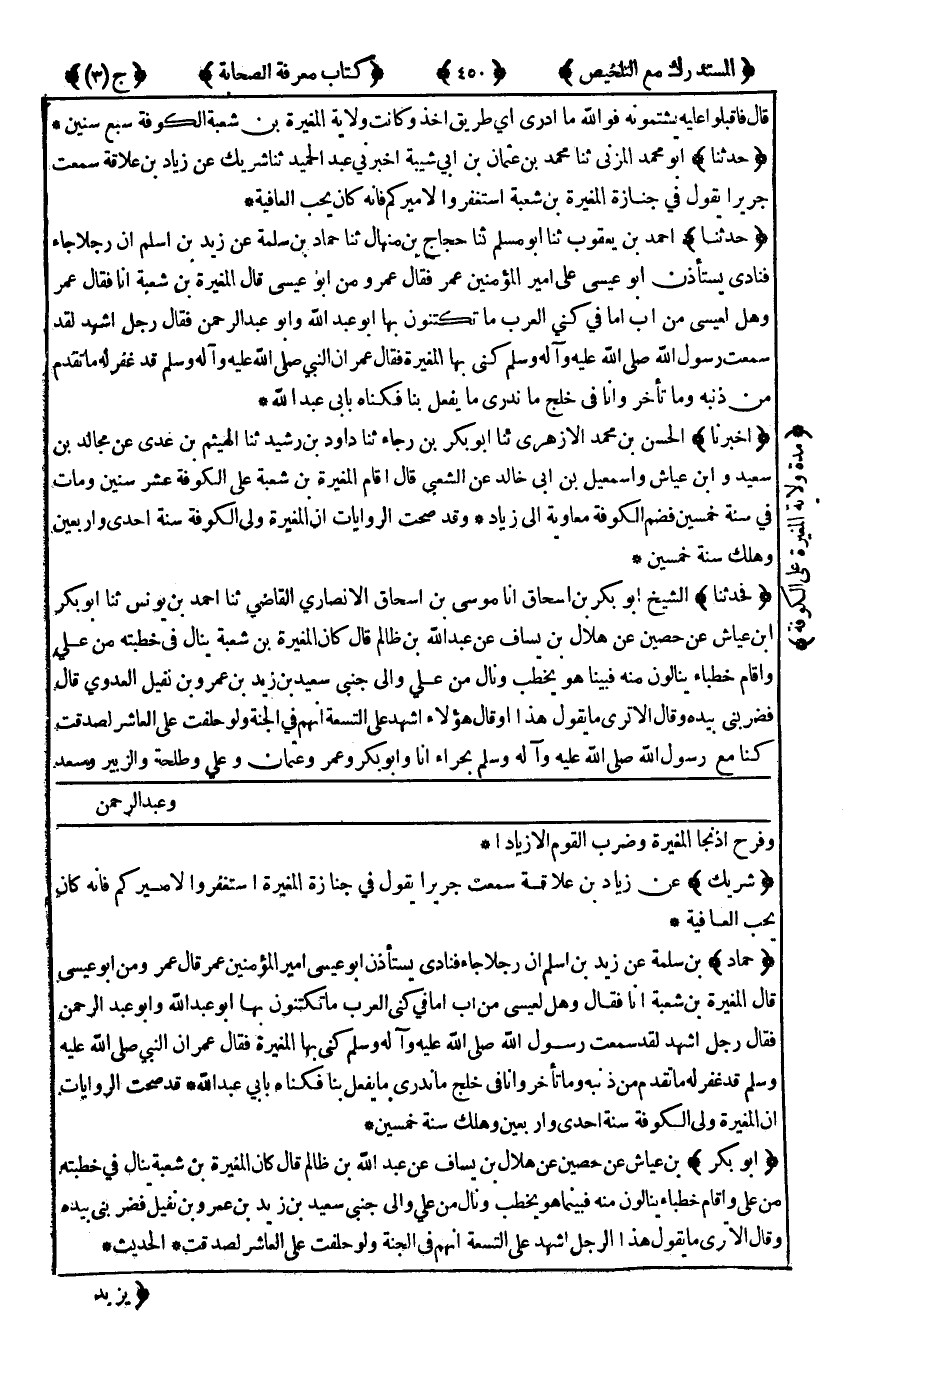 ﴿المستدرك مع التلخيص﴾ ﴿٤٥٠﴾ ﴿كتاب معرفة الصحابة﴾ ﴿ج(٣)﴾
قال فاقبلوا عليه يشتمونه فو الله ما ادرى اي طريق اخذ وكانت ولاية المغيرة بن شعبة الكوفة سبع سنين *
﴿حدثنا﴾ ابو محمد المزنى ثنا محمد بن عثمان بن ابي شيبة اخبرني عبد الحميد ثنا شريك عن زياد بن علاقة سمعت
جريرا يقول في جنازة المغيرة بن شعبة استغفروا لاميركم فانه كان يحب العافية *
﴿حدثنا﴾ احمد بن يعقوب ثنا ابو مسلم ثنا حجاج بن منهال ثنا حماد بن سلمة عن زيد بن اسلم ان رجلا جاء
فنادى يستأذن ابو عيسى على امير المؤمنين عمر فقال عمر و من ابو عيسى قال المغيرة بن شعبة انا فقال عمر
وهل لعيسى من اب اما في كني العرب ما تكتنون بها ابو عبد الله وابو عبد الرحمن فقال رجل اشهد لقد
سمعت رسول الله صلى الله عليه وآله وسلم كنى بها المغيرة فقال عمر ان النبي صلى الله عليه وآله وسلم قد غفر له ما تقدم
من ذنبه وما تأخر وانا فى خلج ما ندرى ما يفعل بنا فكناه بابى عبد الله *
﴿اخبرنا﴾ الحسن بن محمد الازهرى ثنا ابو بكر بن رجاء ثنا داود بن رشيد ثنا الهيثم بن عدى عن مجالد بن
سعيد و ابن عياش واسمعيل بن ابى خالد عن الشعبي قال اقام المغيرة بن شعبة على الكوفة عشر سنين ومات
في سنة خمسين فضم الكوفة معاوية الى زياد * وقد صحت الروايات ان المغيرة ولى الكوفة سنة احدى واربعين
وهلك سنة خمسين *
﴿فحدثنا﴾ الشيخ ابو بكر بن اسحاق انا موسى بن اسحاق الانصاري القاضي ثنا احمد بن يونس ثنا ابو بكر
ابن عياش عن حصين عن هلال بن يساف عن عبد الله بن ظالم قال كان المغيرة بن شعبة ينال فى خطبته من علي
واقام خطباء ينالون منه فبينا هو يخطب ونال من علي والى جنبي سعيد بن زيد بن عمرو بن نفيل العدوي قال
فضربنى بيده وقال الا ترى ما يقول هذا او قال هؤلاء اشهد على التسعة انهم في الجنة ولو حلفت على العاشر لصدقت
كنا مع رسول الله صلى الله عليه وآله وسلم بحراء انا وابو بكر وعمر وعثمان و علي وطلحة والزبير وسعد
وعبد الرحمن
﴿مدة ولاية المغيرة على الكوفة﴾
وفرح اذ نجا المغيرة وضرب القوم الا زيادا *
﴿شريك﴾ عن زياد بن علاقة سمعت جريرا يقول في جنازة المغيرة استغفروا لاميركم فانه كان
يحب العافية *
﴿حماد﴾ بن سلمة عن زيد بن اسلم ان رجلا جاء فنادى يستأذن ابو عيسى امير المؤمنين عمر قال عمر ومن ابو عيسى
قال المغيرة بن شعبة انا فقال وهل لعيسى من اب اما في كنى العرب ما تكتنون بها ابو عبد الله وابو عبد الرحمن
فقال رجل اشهد لقد سمعت رسول الله صلى الله عليه وآله وسلم كنى بها المغيرة فقال عمر ان النبي صلى الله عليه
وسلم قد غفر له ما تقدم من ذنبه وما تأخر وانا فى خلج ما ندرى ما يفعل بنا فكناه بابي عبد الله * قد صحت الروايات
ان المغيرة ولى الكوفة سنة احدى واربعين وهلك سنة خمسين *
﴿ابو بكر﴾ بن عياش عن حصين عن هلال بن يساف عن عبد الله بن ظالم قال كان المغيرة بن شعبة ينال في خطبته
من على واقام خطباء ينالون منه فبينما هو يخطب ونال من علي والى جنبي سعيد بن زيد بن عمرو بن نفيل فضربنى بيده
وقال الا ترى ما يقول هذا الرجل اشهد على التسعة انهم في الجنة ولو حلفت على العاشر لصدقت * الحديث *
﴿يزيد